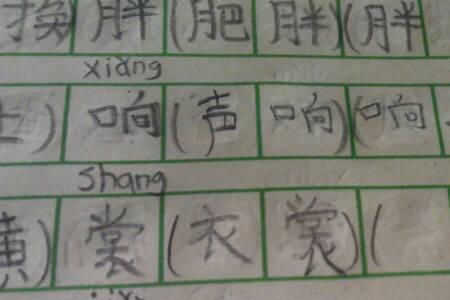 换 胖(肥胖)(胖
xiǎng
) 响(声响)(响
shang
) 裳(衣裳)(